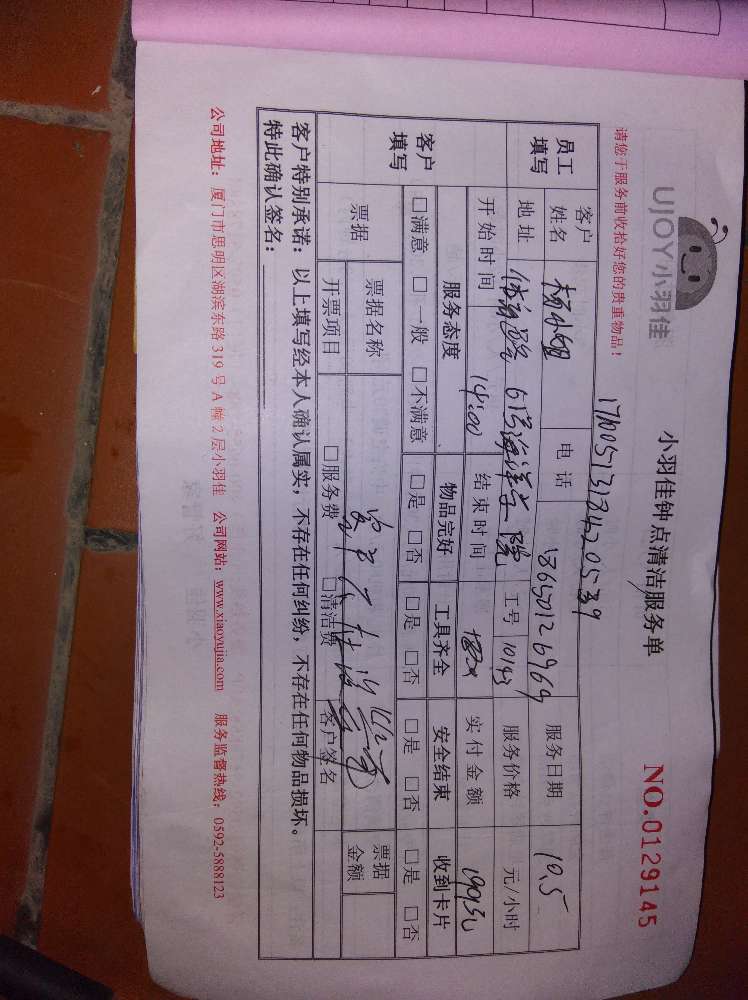 UJOY小羽佳
小羽佳钟点清洁服务单
NO.0129145
请您于服务前收拾好您的贵重物品！
1710051313420539
员工填写
客户姓名 杨小姐 电话 18650126969 服务日期 10.5
地址 体育路61号海洋学院 工号 服务价格 元/小时
开始时间 14:00 结束时间 实付金额
客户填写
服务态度 物品完好 工具齐全 安全结束 收到卡片
□满意 □一般 □不满意 □是 □否 □是 □否 □是 □否 □是 □否
票据 票据名称 票据金额
开票项目 □服务费 □清洁费 客户签名
客户特别承诺：以上填写经本人确认属实，不存在任何纠纷，不存在任何物品损坏。
特此确认签名：
公司地址：厦门市思明区湖滨东路319号A幢2层小羽佳 公司网站：www.xiaoyujia.com 服务监督热线：0592-5888123